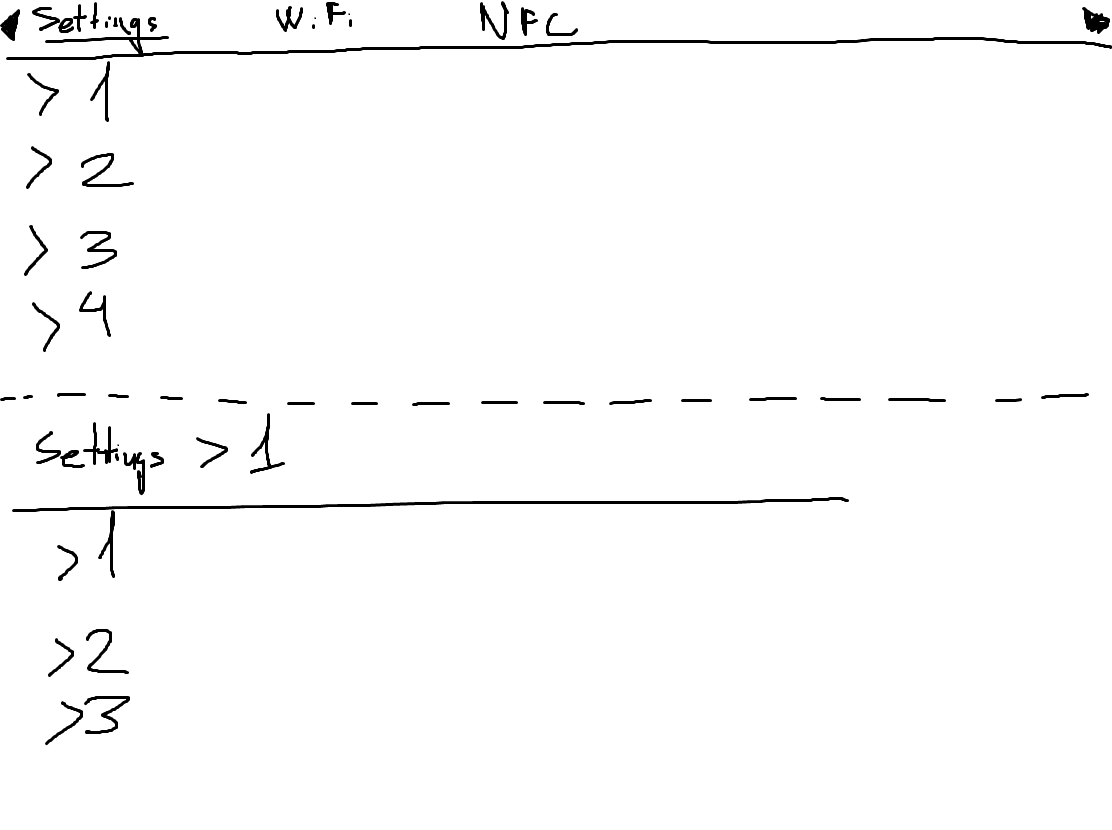 Settings WiFi NFC
> 1
> 2
> 3
> 4
Settings > 1
> 1
> 2
> 3